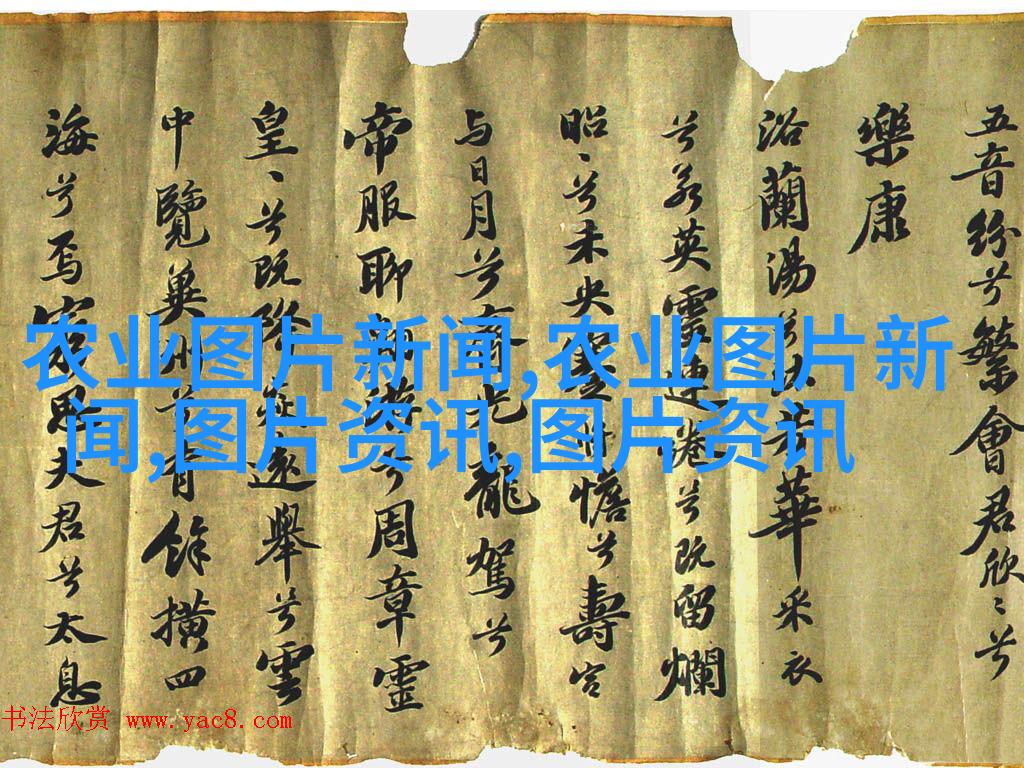 五音紛兮繁會君欣〻兮
樂康
浴蘭湯兮沐芳華采衣
兮若英靈連卷兮既留爛
昭〻兮未央蹇将憺兮壽宮
与日月兮齊光龍駕兮
帝服聊翱遊兮周章靈
皇〻兮既降猋遠舉兮雲
中覽兾州兮有餘橫四
海兮焉窮思夫君兮太息
农业图片新闻,农业图片新
闻,图片资讯,图片资讯
书法欣赏 www.yac8.com